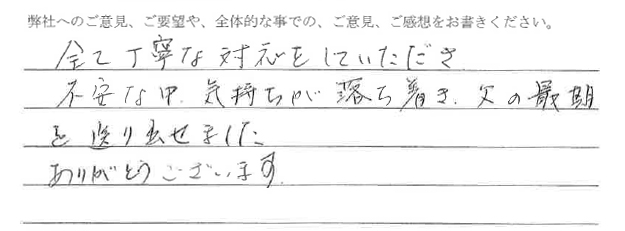 弊社へのご意見、ご要望や、全体的な事での、ご意見、ご感想をお書きください。
全て丁寧な対応をしていただき
不安な中、気持ちが落ち着き、父の最期
を送り出せました
ありがとうございます。